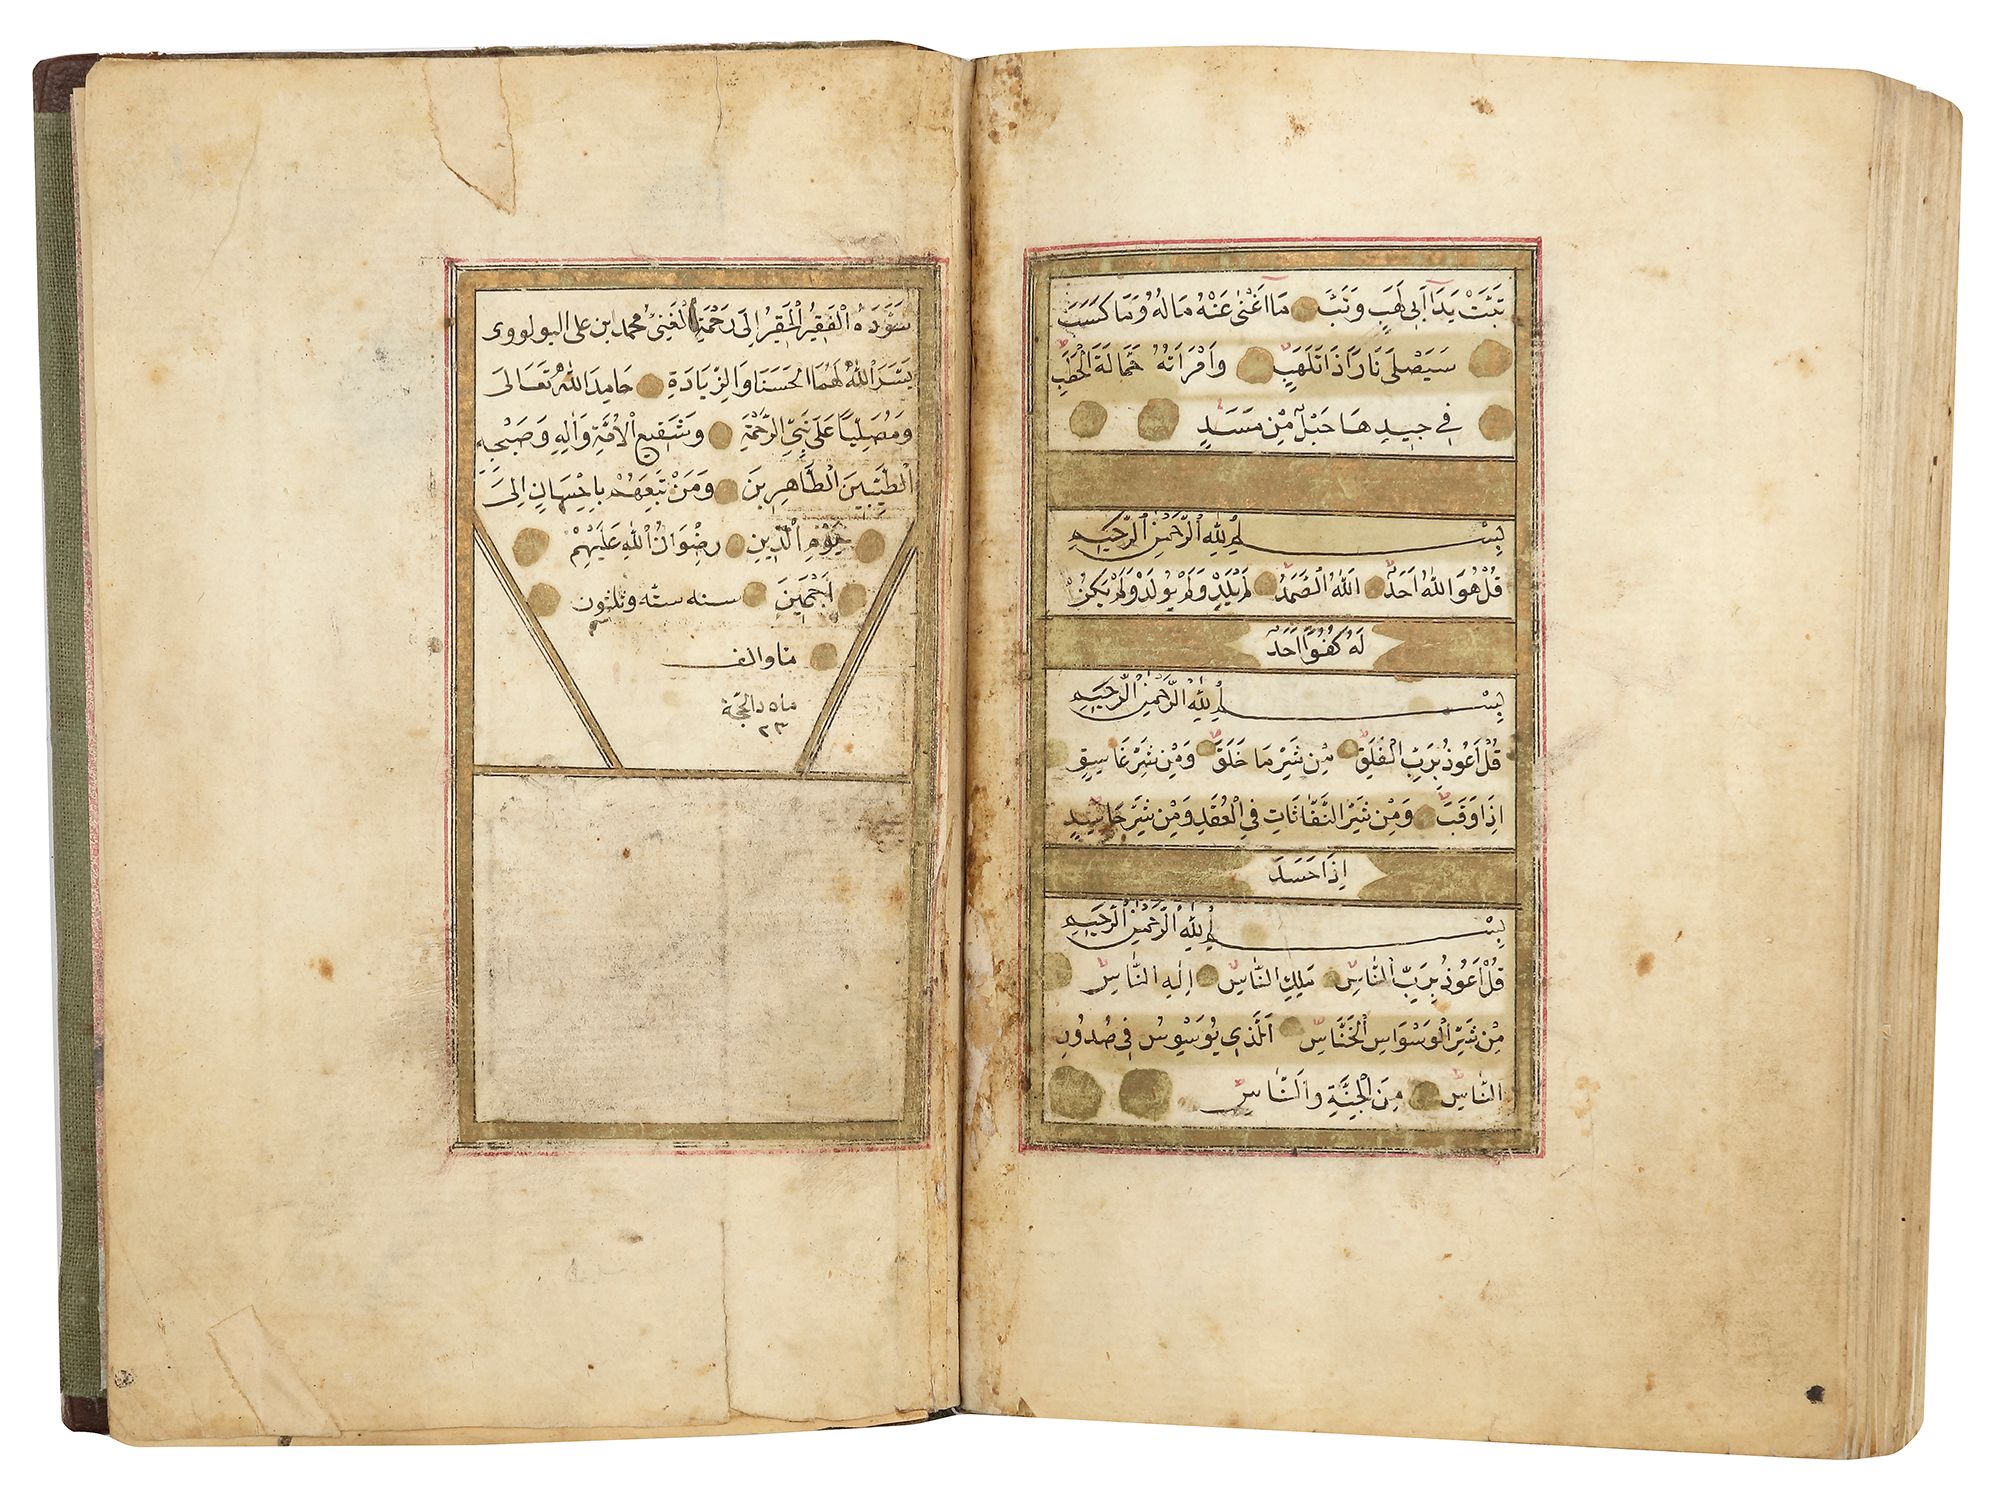 تَبَّتْ يَدَا اَبِى لَهَبٍ وَتَبَّ مَا اَغْنٰى عَنْهُ مَالُهُ وَمَا كَسَبَ
سَيَصْلَى نَارًا ذَاتَ لَهَبٍ وَامْرَاَتُهُ حَمَّالَةَ الْحَطَبِ
فِى جِيدِهَا حَبْلٌ مِنْ مَسَدٍ
بِسْمِ اللهِ الرَّحْمٰنِ الرَّحِيمِ
قُلْ هُوَ اللهُ اَحَدٌ اَللهُ الصَّمَدُ لَمْ يَلِدْ وَلَمْ يُولَدْ وَلَمْ يَكُنْ
لَهُ كُفُوًا اَحَدٌ
بِسْمِ اللهِ الرَّحْمٰنِ الرَّحِيمِ
قُلْ اَعُوذُ بِرَبِّ الْفَلَقِ مِنْ شَرِّ مَا خَلَقَ وَمِنْ شَرِّ غَاسِقٍ
اِذَا وَقَبَ وَمِنْ شَرِّ النَّفَّاثَاتِ فِى الْعُقَدِ وَمِنْ شَرِّ حَاسِدٍ
اِذَا حَسَدَ
بِسْمِ اللهِ الرَّحْمٰنِ الرَّحِيمِ
قُلْ اَعُوذُ بِرَبِّ النَّاسِ مَلِكِ النَّاسِ اِلٰهِ النَّاسِ
مِنْ شَرِّ الْوَسْوَاسِ الْخَنَّاسِ اَلَّذِى يُوَسْوِسُ فِى صُدُورِ
النَّاسِ مِنَ الْجِنَّةِ وَالنَّاسِ
سَوَّدَهُ الْفَقِيرُ الْحَقِيرُ اِلَى رَحْمَةِ الْغَنِىِّ محمد ابن على البولووى
يَسَّرَ اللهُ لَهُمَا الْحَسَنَا وَالزِّيَادَةِ حَامِدَ اللهُ تَعَالَى
وَمُصَلِّيًا عَلَى نَبِىِّ الرَّحْمَةِ وَشَفِيعِ الْاُمَّةِ وَاٰلِهِ وَصَحْبِهِ
الطَّيِّبِينَ الطَّاهِرِينَ وَمَنْ تَبِعَهُمْ بِاِحْسَانٍ اِلَى
يَوْمِ الدِّينِ رِضْوَانُ اللهِ عَلَيْهِمْ
اَجْمَعِينَ سنه سته وثلثون
والف
ماه ذالحجة
٢٣